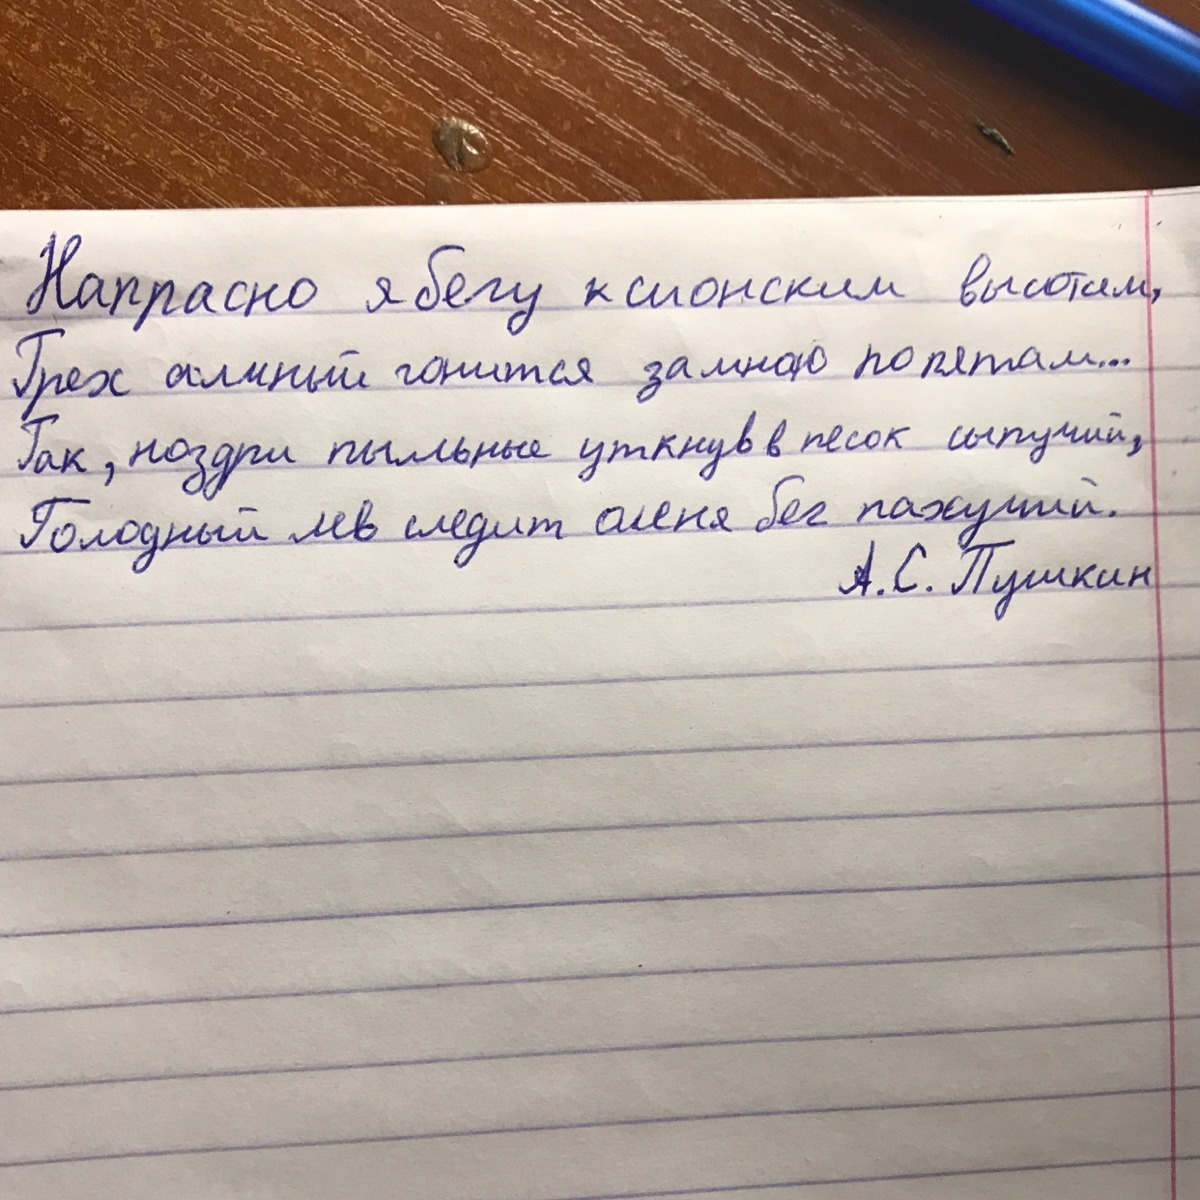 Напрасно я бегу к сионским высотам,
Грех алчный гонится за мною по пятам...
Так, ноздри пыльные уткнув в песок сыпучий,
Голодный лев следит оленя бег пахучий.
А.С. Пушкин